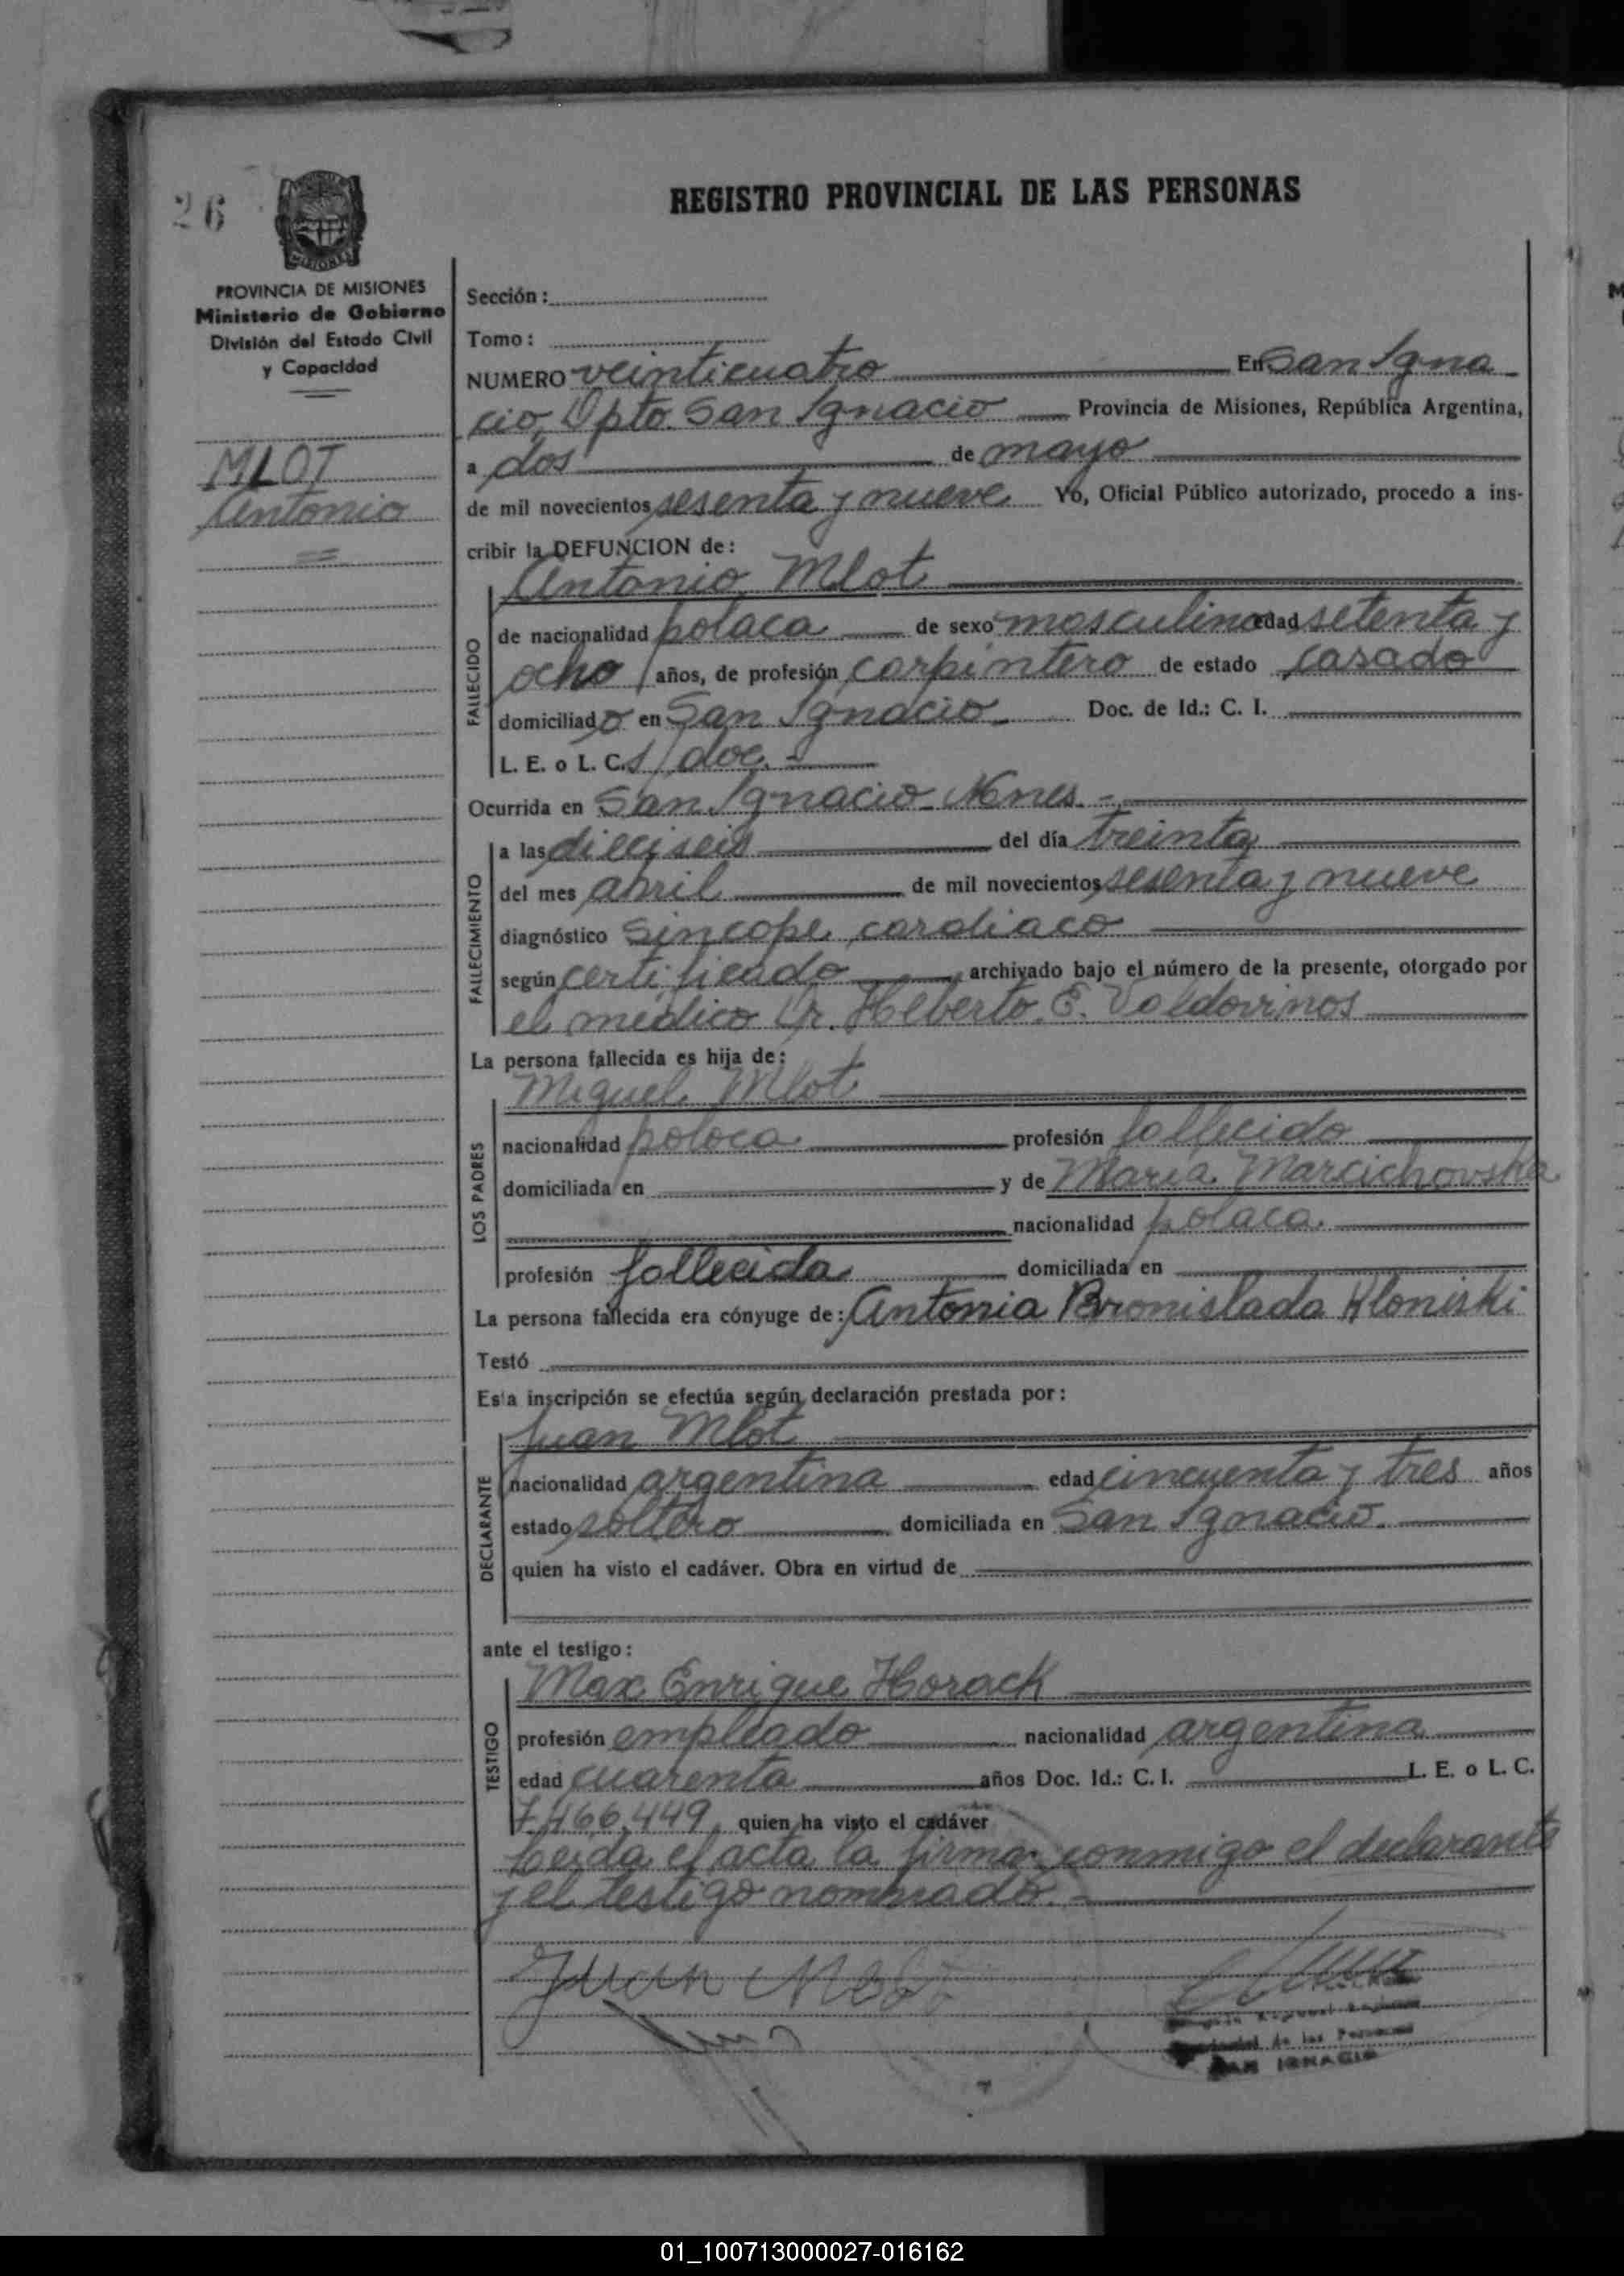 26
MISIONES
PROVINCIA DE MISIONES
Ministerio de Gobierno
División del Estado Civil
y Capacidad
MLOT
Antonio
REGISTRO PROVINCIAL DE LAS PERSONAS
Sección:
Tomo:
NUMERO veinticuatro En San Igna
cio, Dpto. San Ignacio Provincia de Misiones, República Argentina,
a dos de mayo
de mil novecientos sesenta y nueve Yo, Oficial Público autorizado, procedo a ins-
cribir la DEFUNCION de:
Antonio Mlot
FALLECIDO
de nacionalidad polaca de sexo masculino edad setenta y
ocho años, de profesión carpintero de estado casado
domiciliado en San Ignacio. Doc. de Id.: C. I.
L. E. o L. C. s/doc.
Ocurrida en San Ignacio Mnes.
FALLECIMIENTO
a las dieciseis del día treinta
del mes abril de mil novecientos sesenta y nueve
diagnóstico Síncope cardiaco
según certificado archivado bajo el número de la presente, otorgado por
el médico Dr. Helberto E. Valdovinos
La persona fallecida es hija de:
Miguel Mlot
LOS PADRES
nacionalidad polaca profesión fallecido
domiciliada en y de Maria Marcichovska
nacionalidad polaca.
profesión fallecida domiciliada en
La persona fallecida era cónyuge de: Antonia Bronislada Kloniski
Testó
Esta inscripción se efectúa según declaración prestada por:
Juan Mlot
DECLARANTE
nacionalidad argentina edad cincuenta y tres años
estado soltero domiciliada en San Ignacio.
quien ha visto el cadáver. Obra en virtud de
ante el testigo:
Max Enrique Horack
TESTIGO
profesión empleado nacionalidad argentina
edad cuarenta años Doc. Id.: C. I. L. E. o L. C.
7.466.449, quien ha visto el cadáver
Leida el acta la firman conmigo el declarante
y el testigo nombrado.
Juan Mlot
de las Personas
SAN IGNACIO
01_100713000027-016162